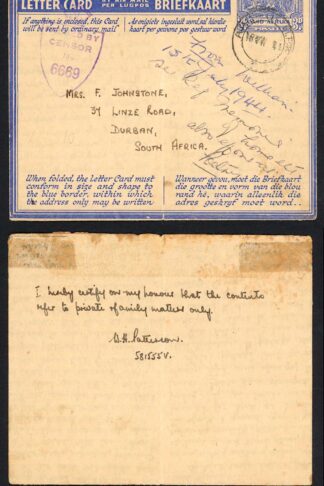 LETTER CARD BRIEFKAART
PER LUGPOS
If anything is enclosed, this Card
will be sent by ordinary mail
As enigiets ingesluit word, sal hierdie
kaart per gewone pos gestuur word
BY
CENSOR
6669
From
15th July 1944
Mrs. F. JOHNSTONE,
37 LINZE ROAD,
DURBAN,
SOUTH AFRICA.
also
When folded, the Letter Card must
conform in size and shape to
the blue border, within which
the address only may be written
Wanneer gevou, moet die Briefkaart
die grootte en vorm van die blou
rand hê, waarin alleenlik die
adres geskryf moet word..
I hereby certify on my honour that the contents
refer to private & family matters only.
D.H. Patterson.
581555V.